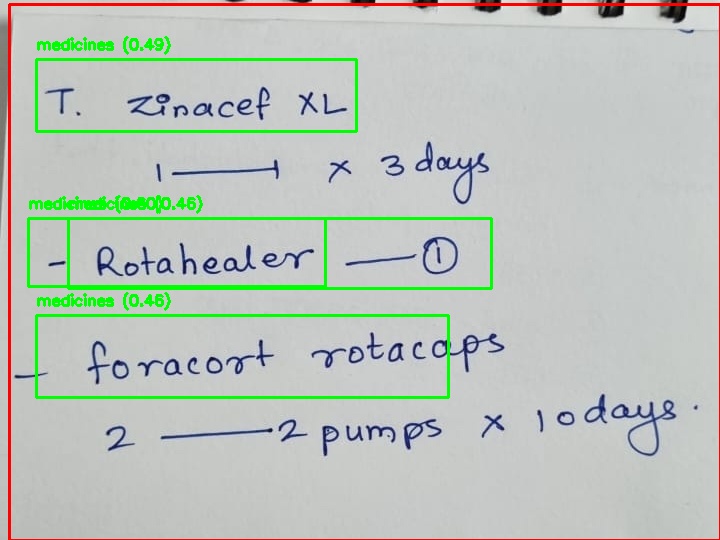 medicines (0.49)
T. Zinacef XL
1 — 1 x 3 days
(0.45)
- Rotahealer — ①
medicines (0.45)
- foracort rotacaps
2 — 2 pumps x 10 days.